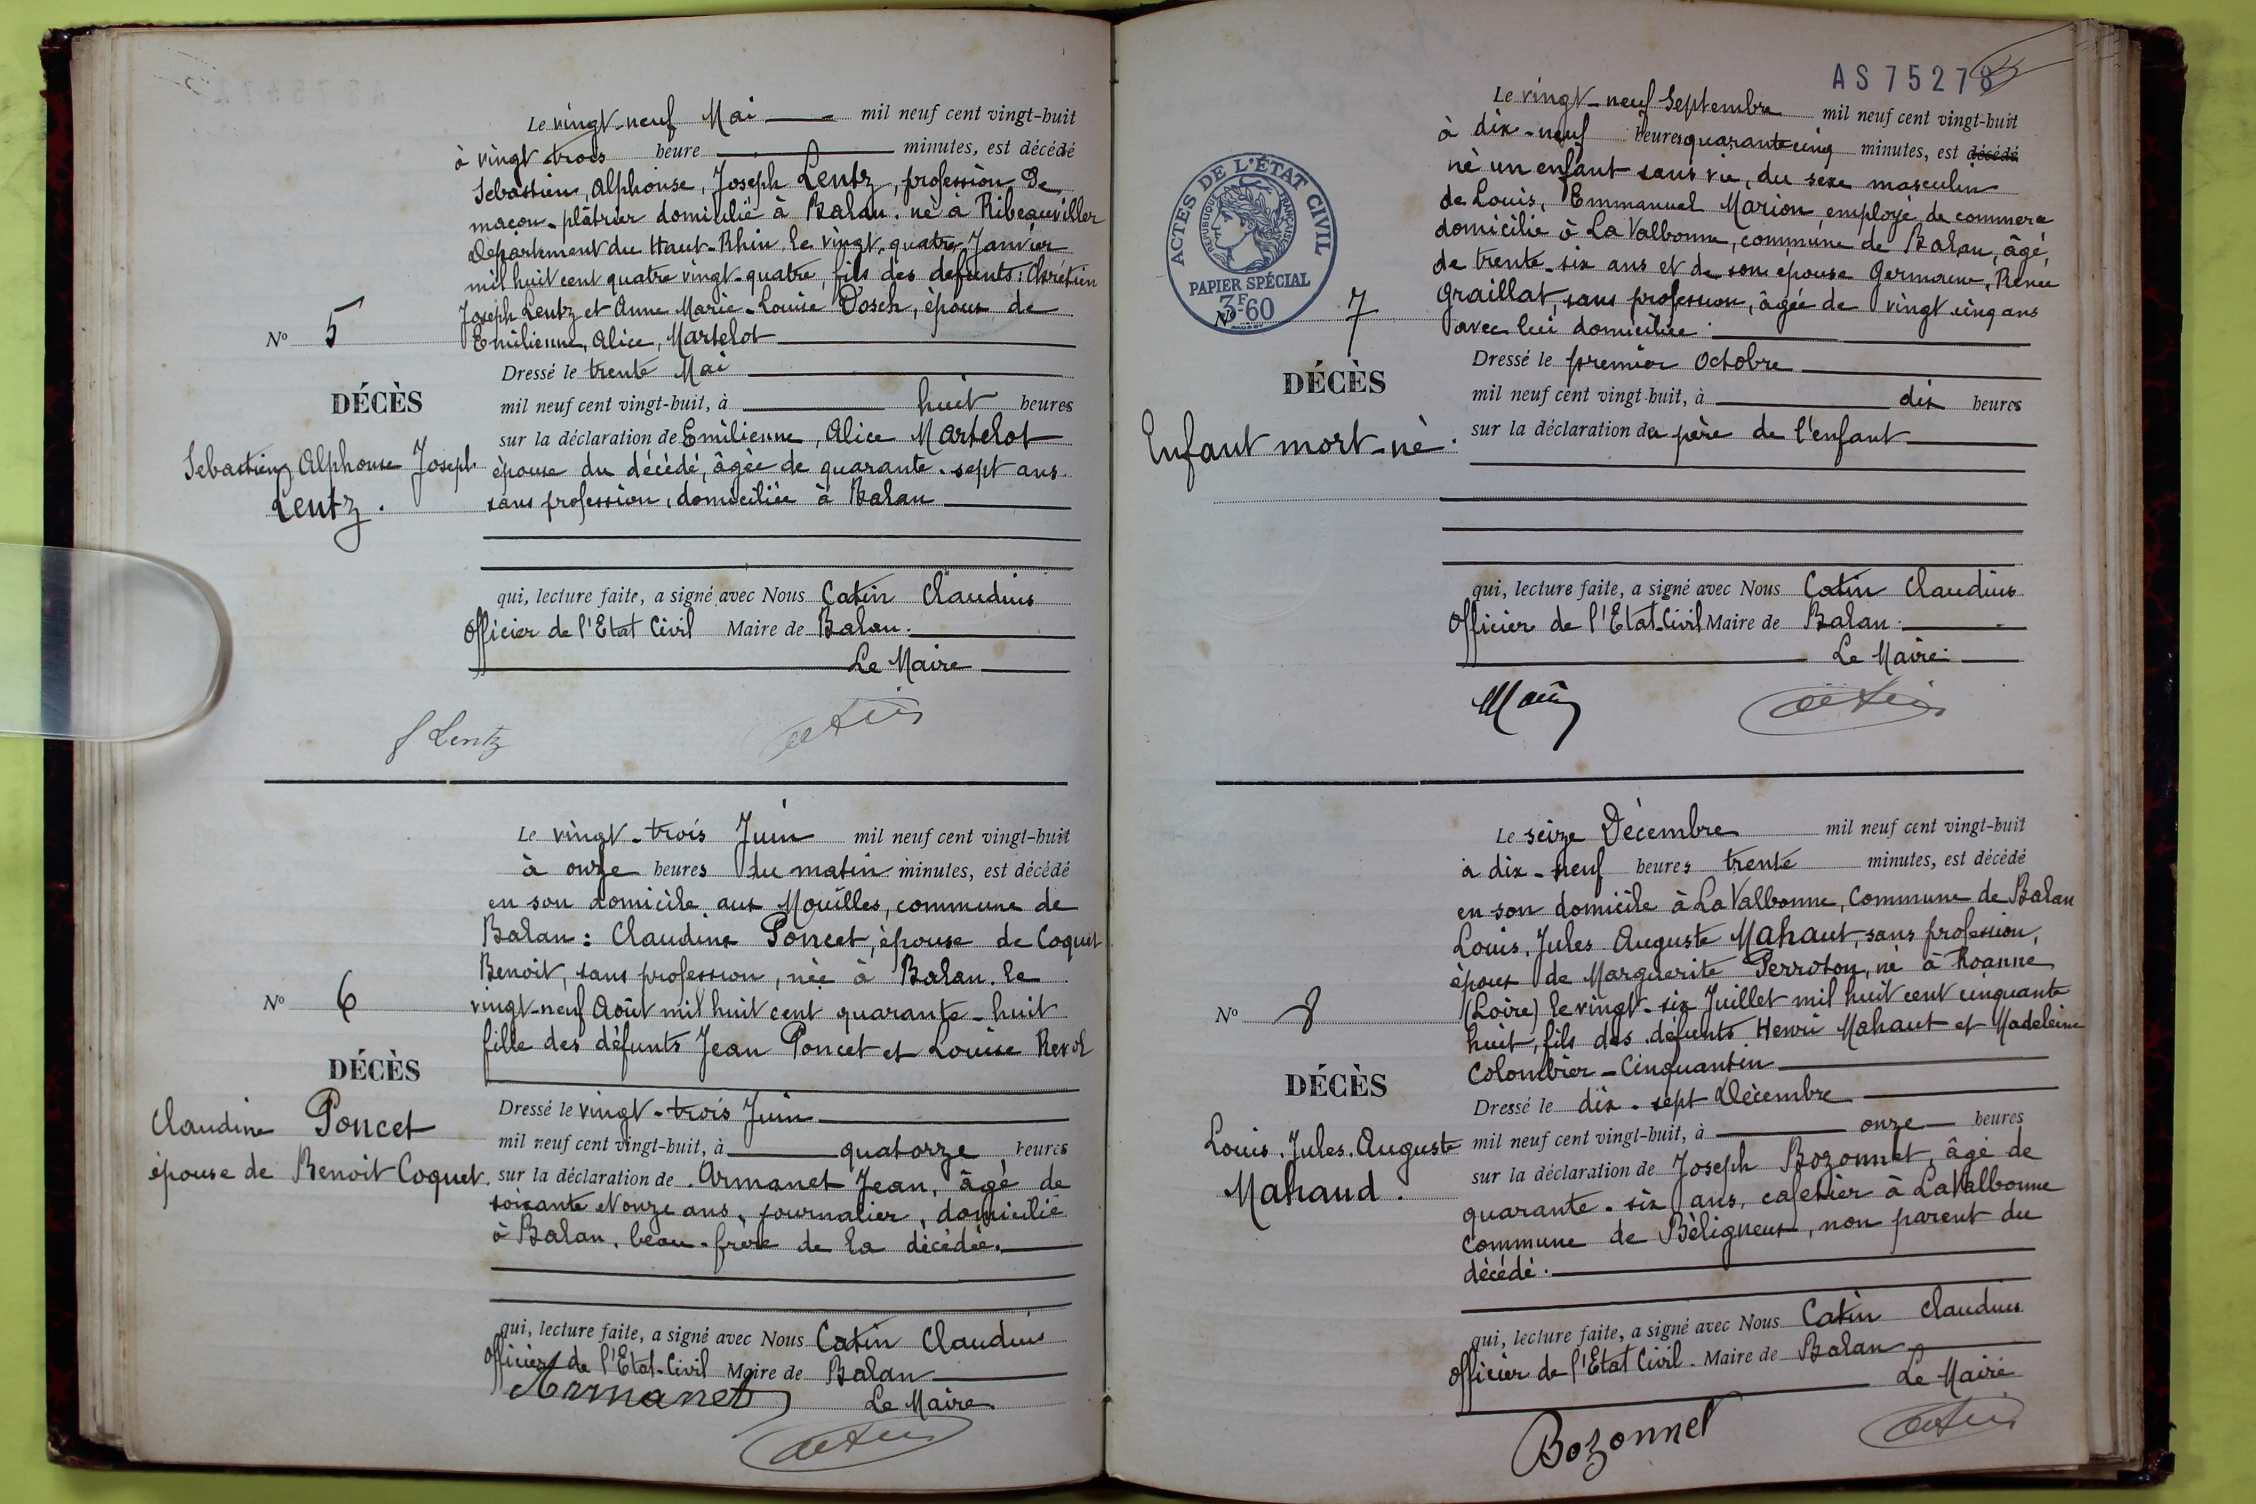 Le vingt-neuf Mai mil neuf cent vingt-huit
à vingt trois heure minutes, est décédé
Sebastien, Alphonse, Joseph Lentz, profession de
maçon-plâtrier domicilié à Balan. né à Ribeauviller
Département du Haut-Rhin le vingt-quatre Janvier
mil huit cent quatre vingt-quatre, fils des defunts: Chrétien
Joseph Lentz et Anne Marie-Louise Dosch, époux de
Emilienne, Alice, Martelot
No 5
Dressé le trente Mai
DÉCÈS
mil neuf cent vingt-huit, à huit heures
sur la déclaration de Emilienne, Alice Martelot
Sebastien Alphonse Joseph
Lentz.
épouse du décédé, âgée de quarante-sept ans
sans profession, domiciliée à Balan
qui, lecture faite, a signé avec Nous Catin Claudius
Officier de l'Etat Civil Maire de Balan.
Le Maire
Lentz
Le vingt-trois Juin mil neuf cent vingt-huit
à onze heures du matin minutes, est décédé
en son domicile aux Mouilles, commune de
Balan: Claudine Poncet, épouse de Coquet
Benoit, sans profession, née à Balan. le
vingt-neuf Août mil huit cent quarante-huit
fille des défunts Jean Poncet et Louise Revol
No 6
DÉCÈS
Claudine Poncet
épouse de Benoit Coquet.
Dressé le vingt-trois Juin
mil neuf cent vingt-huit, à quatorze heures
sur la déclaration de Armanet Jean, âgé de
soixante et onze ans, journalier, domicilié
à Balan, beau-frere de la décédée.
qui, lecture faite, a signé avec Nous Catin Claudius
Officier de l'Etat-Civil Maire de Balan
Armanet
Le Maire
AS75278
Le vingt-neuf Septembre mil neuf cent vingt-huit
à dix-neuf heures quarante cinq minutes, est décédé
né un enfant sans vie, du sexe masculin
de Louis, Emmanuel Marion employé de commerce
domicilié à La Valbonne, commune de Balan, âgé,
de trente-six ans et de son épouse Germaine, Renée
Graillat, sans profession, âgée de vingt cinq ans
avec lui domiciliée.
ACTES DE L'ÉTAT CIVIL
RÉPUBLIQUE FRANÇAISE
PAPIER SPÉCIAL
3F60
No 7
DÉCÈS
Enfant mort-né.
Dressé le premier Octobre
mil neuf cent vingt-huit, à dix heures
sur la déclaration du père de l'enfant
qui, lecture faite, a signé avec Nous Catin Claudius
Officier de l'Etat-Civil Maire de Balan.
Le Maire
Le seize Décembre mil neuf cent vingt-huit
à dix-neuf heures trente minutes, est décédé
en son domicile à La Valbonne, Commune de Balan
Louis, Jules Auguste Mahaut, sans profession,
époux de Marguerite Perroton, né à Roanne
(Loire) le vingt-six Juillet mil huit cent cinquante
huit, fils des défunts Henri Mahaut et Madeleine
Colombier-Cinquantin
No 8
DÉCÈS
Louis. Jules. Auguste
Mahaud.
Dressé le dix-sept Décembre
mil neuf cent vingt-huit, à onze heures
sur la déclaration de Joseph Bozonnet, âgé de
quarante-six ans, cafetier à La Valbonne
commune de Béligneux, non parent du
décédé.
qui, lecture faite, a signé avec Nous Catin Claudius
Officier de l'Etat Civil. Maire de Balan
Le Maire
Bozonnet